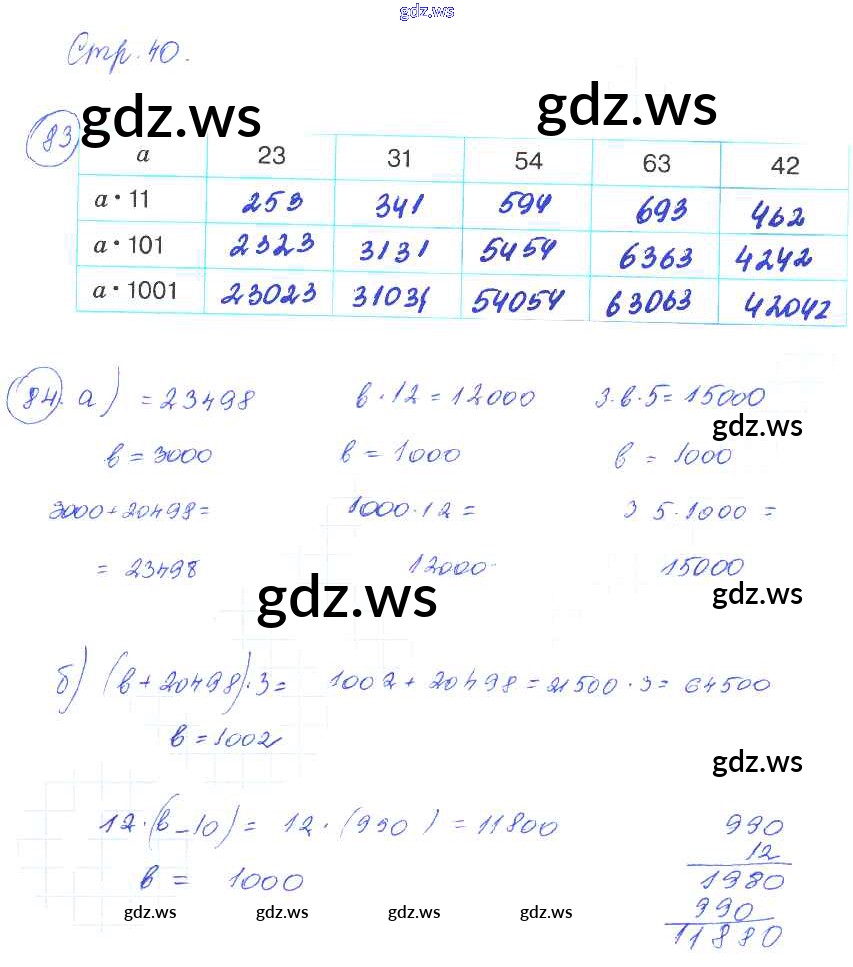 gdz.ws
Стр. 40.
gdz.ws gdz.ws
83
a 23 31 54 63 42
a · 11 253 341 594 693 462
a · 101 2323 3131 5454 6363 4242
a · 1001 23023 31031 54054 63063 42042
84. а) = 23498 в · 12 = 12000 3 · в · 5 = 15000
gdz.ws
в = 3000 в = 1000 в = 1000
3000 + 20498 = 1000 · 12 = 3 5 · 1000 =
= 23498 12000 15000
gdz.ws gdz.ws
б) (в + 20498) · 3 = 1002 + 20498 = 21500 · 3 = 64500
в = 1002
gdz.ws
12 · (в - 10) = 12 · (990) = 11800 990
12
в = 1000 1980
gdz.ws gdz.ws gdz.ws gdz.ws 990
11880